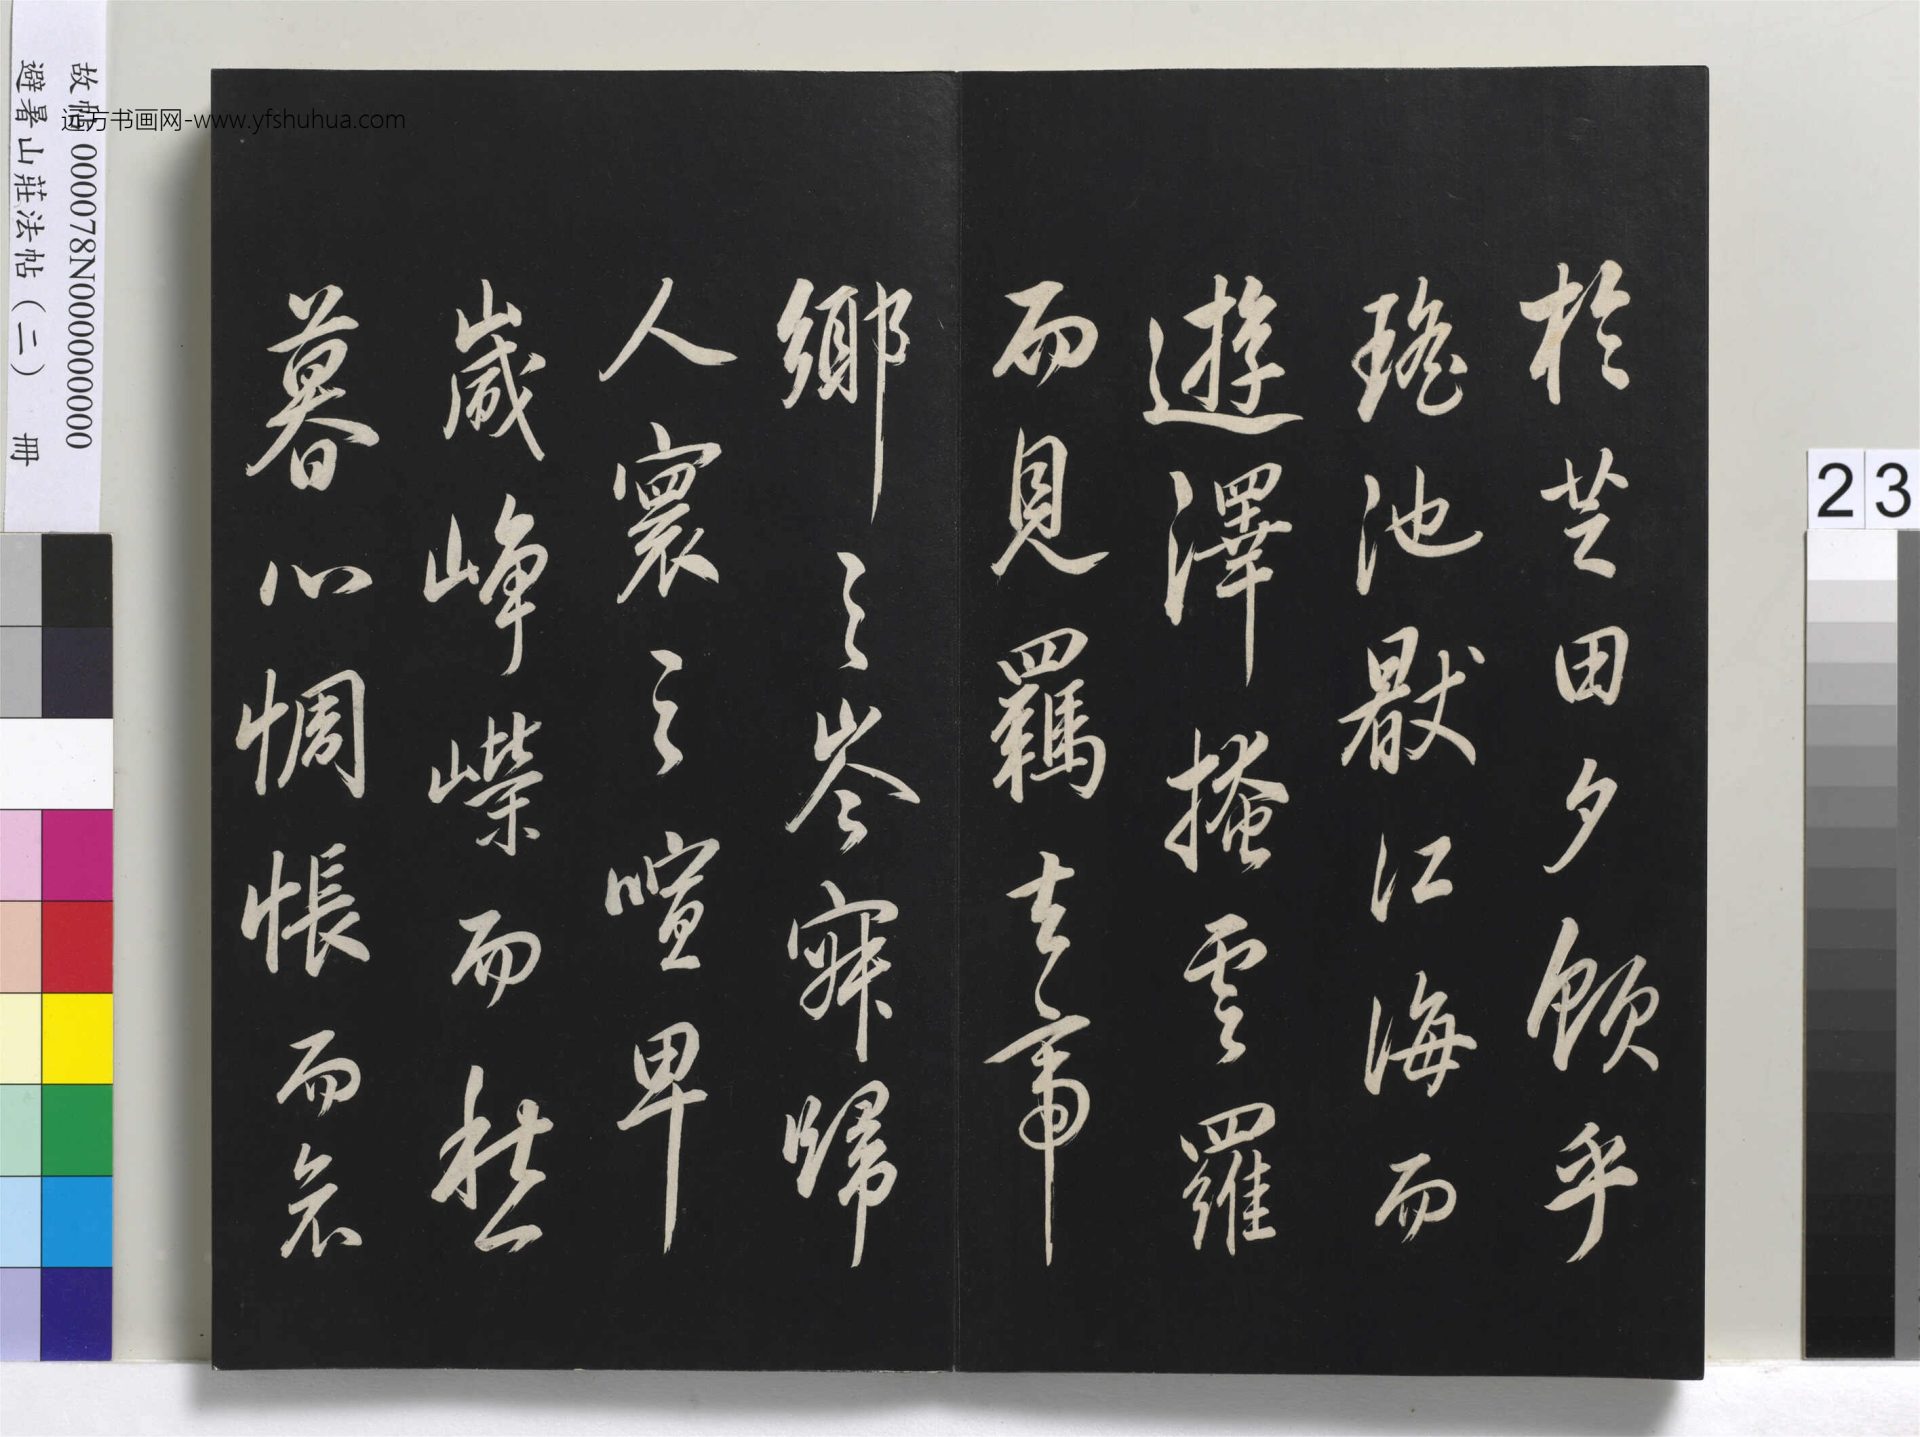 於芝田夕飲乎
瑤池厭江海而
遊澤掩雲羅
而見羈去帝
鄉之岑寂歸
人寰之喧卑
歲崢嶸而愁
暮心惆悵而哀
故帖 000078N000000000
避暑山莊法帖(二) 冊
远方书画网-www.yfshuhua.com
23